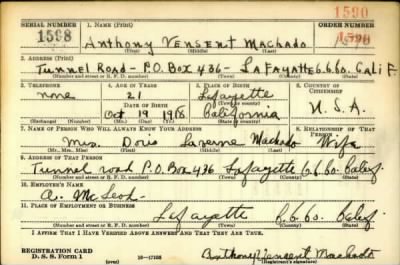 1590
SERIAL NUMBER
1. NAME (Print)
ORDER NUMBER
1598
Anthony Vensent Machado
(First) (Middle) (Last)
2. ADDRESS (Print)
Tunnel Road - P.O. Box 436 - LaFayatte C.C.Co. Calif
(Number and street or R. F. D. number) (Town) (County) (State)
3. TELEPHONE
4. AGE IN YEARS
5. PLACE OF BIRTH
6. COUNTRY OF CITIZENSHIP
none
21
Lafayette
DATE OF BIRTH
(Town or county)
Oct 19 1918
California
U.S.A.
(Exchange) (Number)
(Mo.) (Day) (Yr.)
(State or country)
7. NAME OF PERSON WHO WILL ALWAYS KNOW YOUR ADDRESS
8. RELATIONSHIP OF THAT PERSON
Mrs. Doris Laverne Machado Wife
(Mr., Mrs., Miss) (First) (Middle) (Last)
9. ADDRESS OF THAT PERSON
Tunnel road P.O. Box 436 Lafayette C.C.Co. Calif.
(Number and street or R. F. D. number) (Town) (County) (State)
10. EMPLOYER'S NAME
A. McLeod.
11. PLACE OF EMPLOYMENT OR BUSINESS
Lafayette C.C.Co. Calif.
(Number and street or R. F. D. number) (Town) (County) (State)
I AFFIRM THAT I HAVE VERIFIED ABOVE ANSWERS AND THAT THEY ARE TRUE.
REGISTRATION CARD
D. S. S. Form 1
(over)
16—17105
Anthony Vensent Machado
(Registrant's signature)